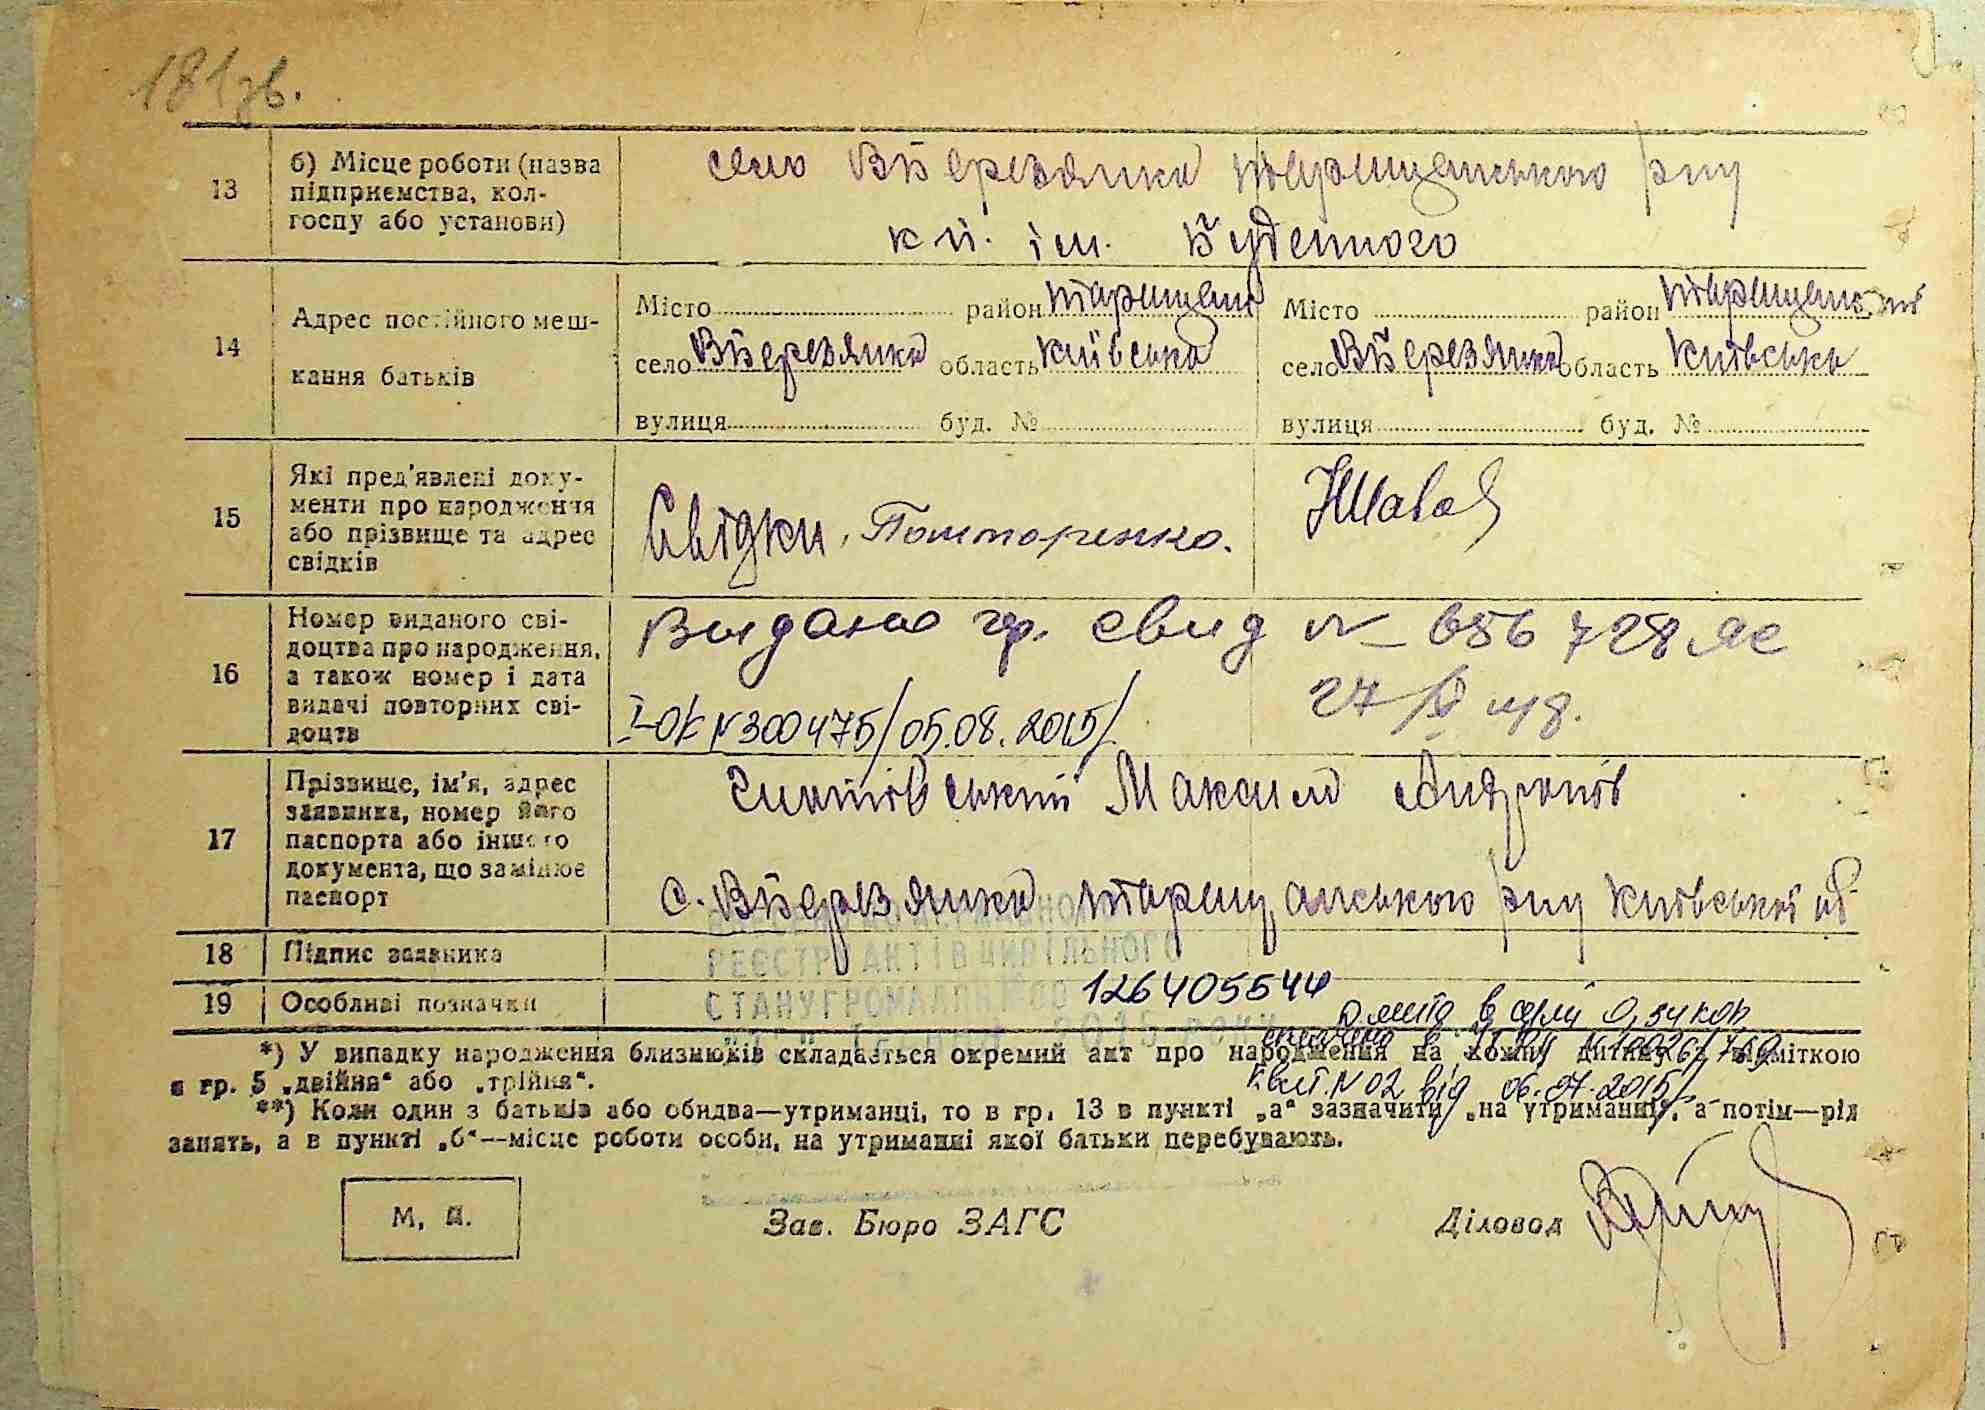 181 зв.
13
б) Місце роботи (назва
підприємства, кол-
госпу або установи)
село Березянка Таращанського р-ну
к-п. ім. Буденного
14
Адрес постійного меш-
кання батьків
Місто район Таращан
село Березянка область Київська
вулиця буд. №
Місто район
село Березянка область Київська
вулиця буд. №
15
Які пред'явлені доку-
менти про народження
або прізвище та адрес
свідків
Свідки,
16
Номер виданого сві-
доцтва про народження,
а також номер і дата
видачі повторних сві-
доцтв
Видано гр. свид № 656728
27
48.
I-ОК N300475/05.08.2015/
17
Прізвище, ім'я, адрес
заявника, номер його
паспорта або іншого
документа, що замінює
паспорт
Максим
с. Березянка Таращанського р-ну Київської об
18
Підпис заявника
РЕЄСТРУ АКТІВ ЦИВІЛЬНОГО
19
Особливі позначки
СТАНУ ГРОМАДЯН ЗА № 1264055444
2015 року
Д.мито в сумі 0,34 коп
квит. N 02 від 06.07.2015/
*) У випадку народження близнюків складається окремий акт про народження на кожну дитину з відміткою
в гр. 5 „двійня“ або „трійня“.
**) Коли один з батьків або обидва—утриманці, то в гр. 13 в пункті „а“ зазначити „на утриманні“, а потім—рід
занять, а в пункті „б“—місце роботи особи, на утриманні якої батьки перебувають.
М. П.
Зав. Бюро ЗАГС
Діловод